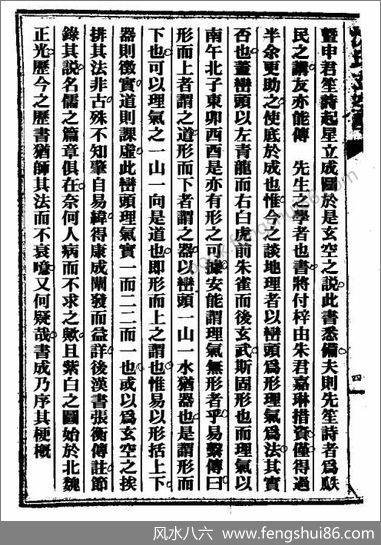 暨申君笙詩起星立成圖於是玄空之說此書悉備夫則先笙詩者為駃
民之講友亦能傳 先生之學者也書將付梓由朱君嘉琳措資僅得過
半余更助之使底於成也惟今之談地理者以巒頭為形理氣為法其實
否也蓋巒頭以左青龍而右白虎前朱雀而後玄武斯固形也而理氣以
南午北子東卯西酉是亦有形之可據安能謂理氣無形者乎易繫傳曰
形而上者謂之道形而下者謂之器以巒頭一山一水猶器也是謂形而
下也可以理氣之一山一向是道也即形而上之謂也惟易以形括上下
器則徵實道則課虛此巒頭理氣實一而二二而一也或以為玄空之挨
排其法非古殊不知肇自易緯得康成闡發而益詳後漢書張衡傳註節
錄其說名儒之篇章俱在奈何人病而不求之歟且紫白之圖始於北魏
正光歷今之歷書猶師其法而不衰噫又何疑哉書成乃序其梗概
四
风水八六 www.fengshui86.com